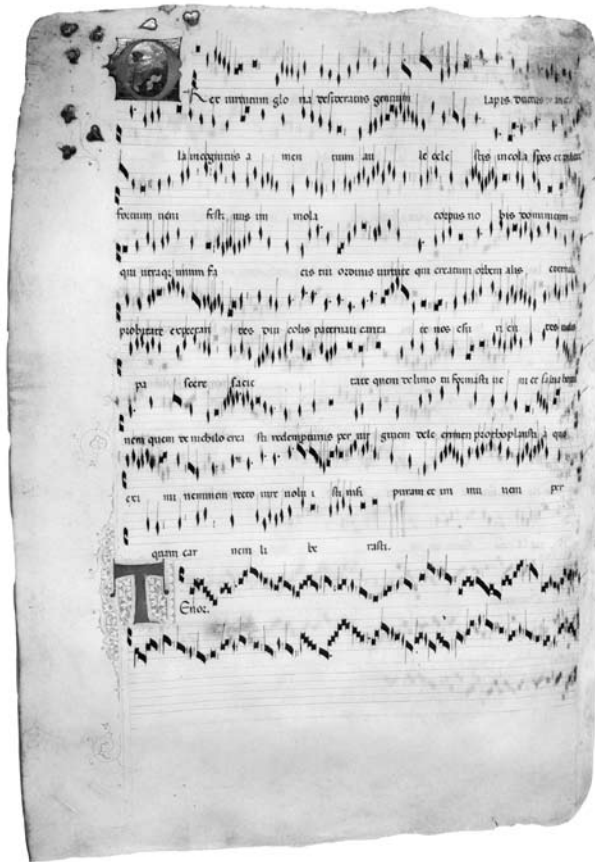 O Rex virtutum glo ria desideratus gentium lapis ductus
la incognitus a men tium au le cele stis incola spes et
festi nus im mola corpus no bis dominicum
qui utraque unum fa cis tui ordinis virtute qui creatum orbem alis eterna
probitate expectan tes dum colis paternali carita te nos esu ri en tes
pa scere facie tate quem de limo tu formasti ue ni et salva homi
nem quem de nichilo crea sti per vir ginem dele crimen prothoplausti a quo
exi mi neminem recto iure nolu i sti nisi puram et im mu nem per
quam car nem li be rasti.
Tenor.